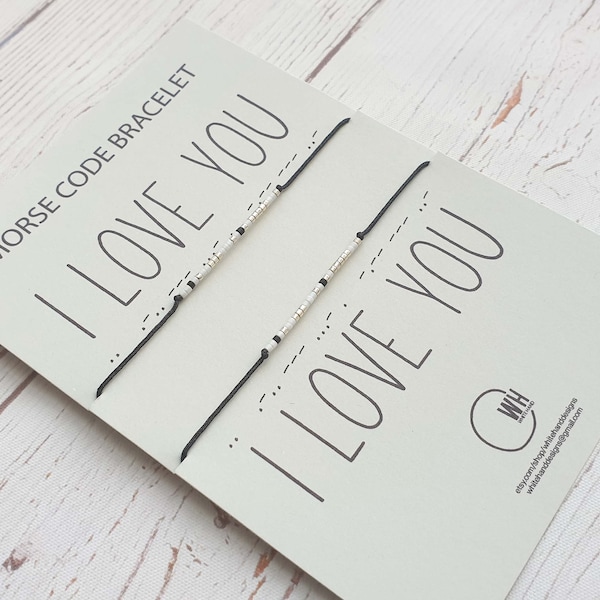 MORSE CODE BRACELET
I LOVE YOU
I LOVE YOU
WH
WHITEHAND
etsy.com/shop/whitehanddesigns
whitehanddesigns@gmail.com